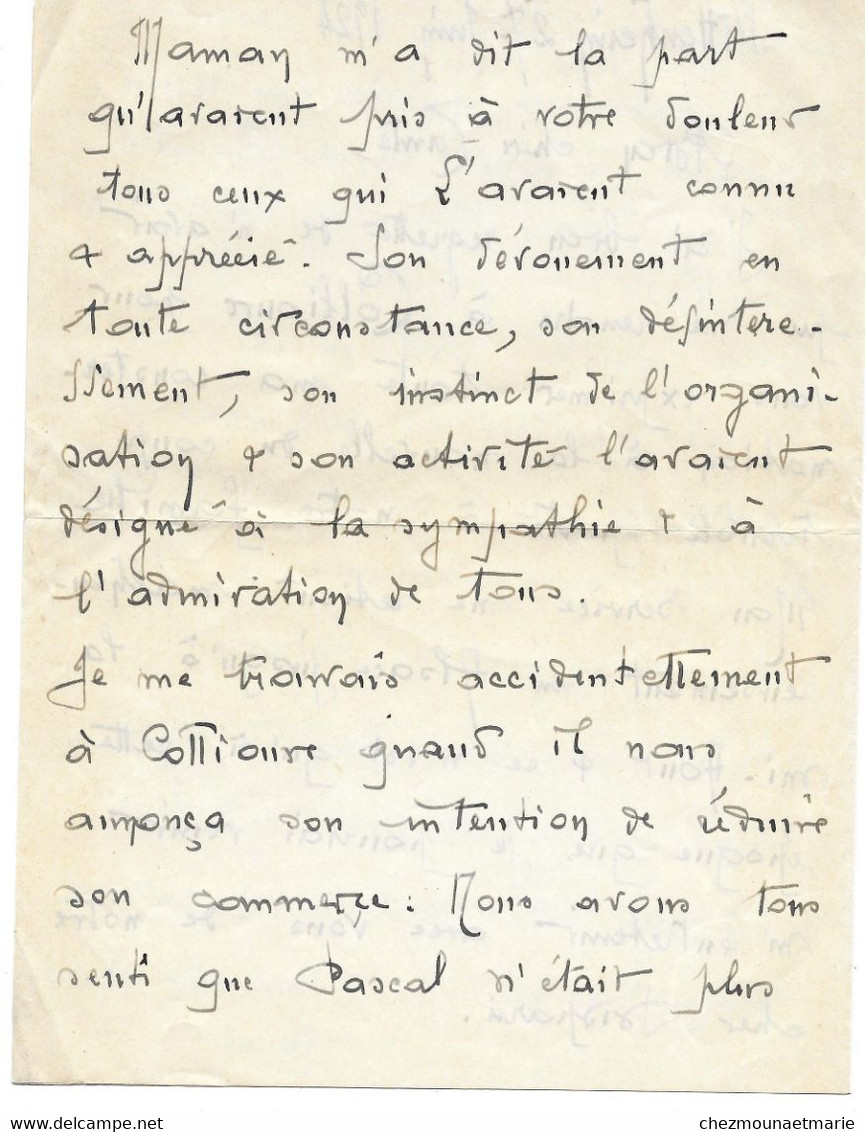 Maman m'a dit la part
qu'avaient pris à votre douleur
tous ceux qui L'avaient connu
& apprécié. Son dévouement en
toute circonstance, son désintere-
ssement, son instinct de l'organi-
sation & son activité l'avaient
désigné à la sympathie & à
l'admiration de tous.
Je me trouvais accidentellement
à Collioure quand il nous
annonça son intention de réduire
son commerce. Nous avons tous
senti que Pascal n'était plus
www.delcampe.net
chezmounaetmarie